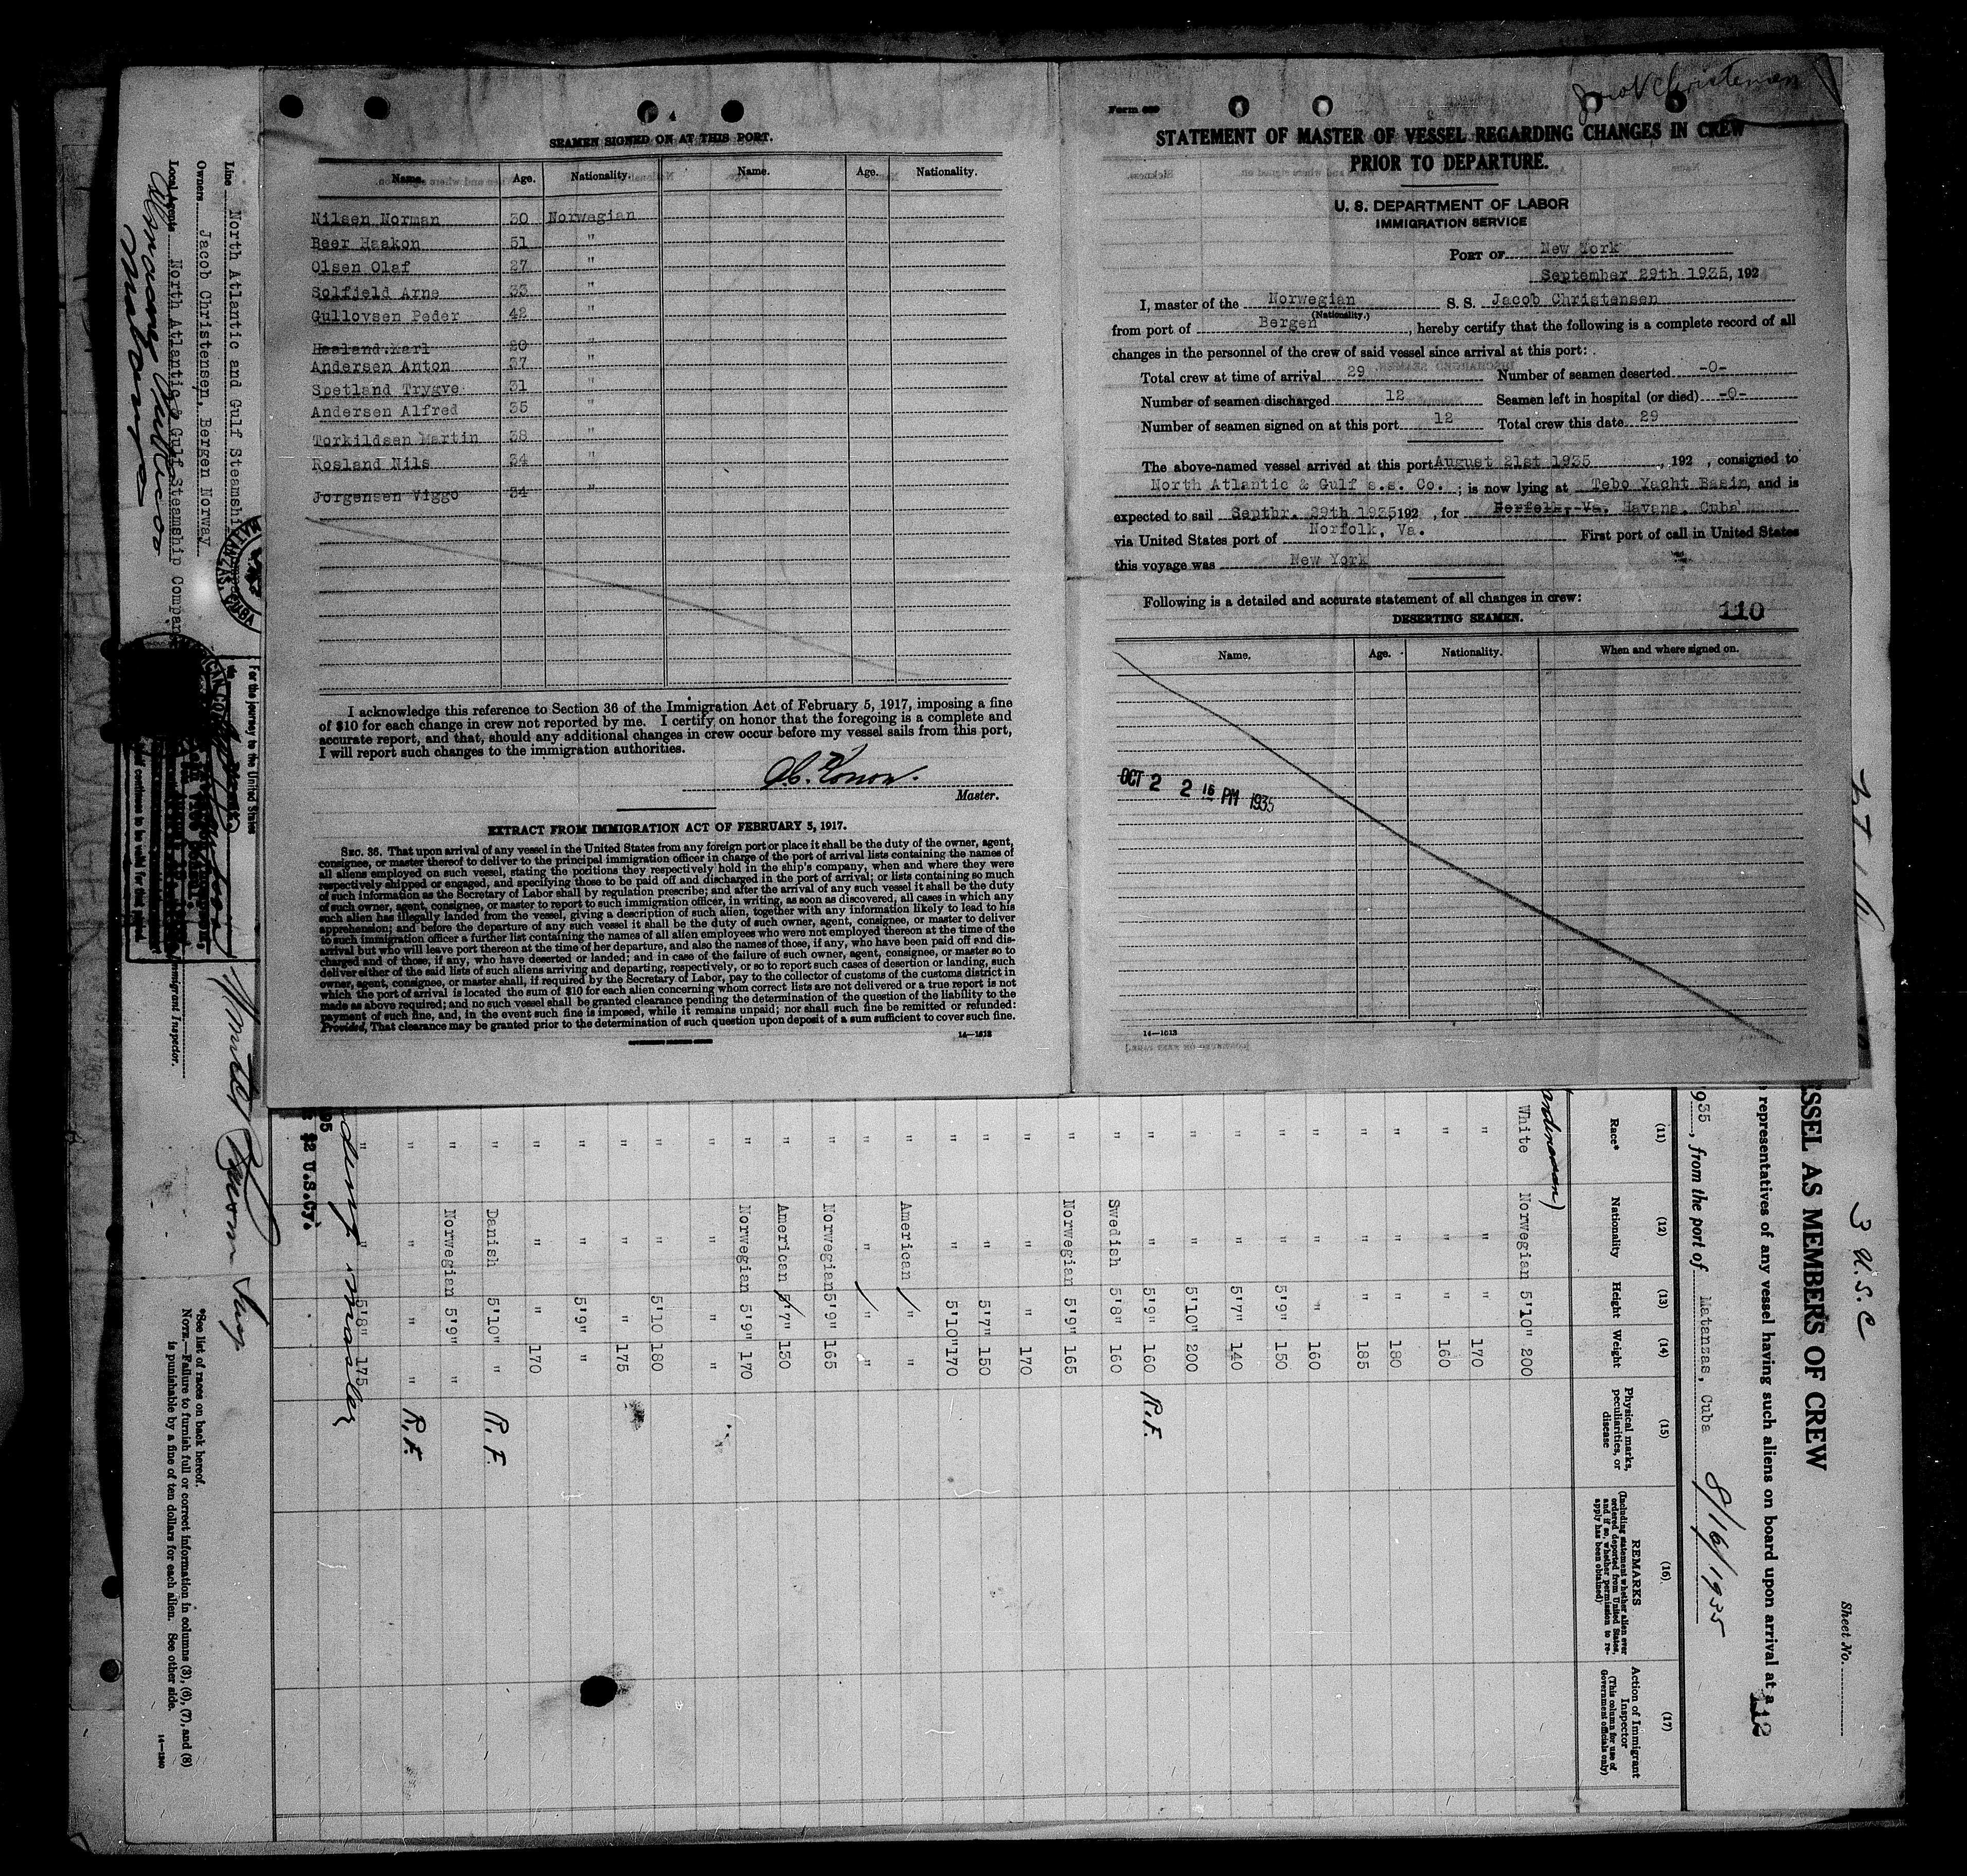 SEAMEN SIGNED ON AT THIS PORT.
Name. Age. Nationality. Name. Age. Nationality.
Nilsen Norman 30 Norwegian
Beer Haakon 51 "
Olsen Olaf 27 "
Solfjeld Arne 33 "
Gullovsen Peder 42 "
Haaland.Karl 20 "
Andersen Anton 37 "
Spetland Trygve 31 "
Andersen Alfred 35 "
Torkildsen Martin 38 "
Rosland Nils 34 "
Jorgensen Viggo 34 "
I acknowledge this reference to Section 36 of the Immigration Act of February 5, 1917, imposing a fine
of $10 for each change in crew not reported by me. I certify on honor that the foregoing is a complete and
accurate report, and that, should any additional changes in crew occur before my vessel sails from this port,
I will report such changes to the immigration authorities.
Master.
EXTRACT FROM IMMIGRATION ACT OF FEBRUARY 5, 1917.
SEC. 36. That upon arrival of any vessel in the United States from any foreign port or place it shall be the duty of the owner, agent,
consignee, or master thereof to deliver to the principal immigration officer in charge of the port of arrival lists containing the names of
all aliens employed on such vessel, stating the positions they respectively hold in the ship's company, when and where they were
respectively shipped or engaged, and specifying those to be paid off and discharged in the port of arrival; or lists containing so much
of such information as the Secretary of Labor shall by regulation prescribe; and after the arrival of any such vessel it shall be the duty
of such owner, agent, consignee, or master to report to such immigration officer, in writing, as soon as discovered, all cases in which any
such alien has illegally landed from the vessel, giving a description of such alien, together with any information likely to lead to his
apprehension; and before the departure of any such vessel it shall be the duty of such owner, agent, consignee, or master to deliver
to such immigration officer a further list containing the names of all alien employees who were not employed thereon at the time of the
arrival but who will leave port thereon at the time of her departure, and also the names of those, if any, who have been paid off and dis-
charged and of those, if any, who have deserted or landed; and in case of the failure of such owner, agent, consignee, or master so to
deliver either of the said lists of such aliens arriving and departing, respectively, or so to report such cases of desertion or landing, such
owner, agent, consignee, or master shall, if required by the Secretary of Labor, pay to the collector of customs of the customs district in
which the port of arrival is located the sum of $10 for each alien concerning whom correct lists are not delivered or a true report is not
made as above required; and no such vessel shall be granted clearance pending the determination of the question of the liability to the
payment of such fine, and, in the event such fine is imposed, while it remains unpaid; nor shall such fine be remitted or refunded:
Provided, That clearance may be granted prior to the determination of such question upon deposit of a sum sufficient to cover such fine.
14—1613
Form 689
STATEMENT OF MASTER OF VESSEL REGARDING CHANGES IN CREW
PRIOR TO DEPARTURE.
U. S. DEPARTMENT OF LABOR
IMMIGRATION SERVICE
PORT OF New York
September 29th 1935, 192
I, master of the Norwegian S. S. Jacob Christensen
(Nationality.)
from port of Bergen, hereby certify that the following is a complete record of all
changes in the personnel of the crew of said vessel since arrival at this port:
Total crew at time of arrival 29 Number of seamen deserted -0-
Number of seamen discharged 12 Seamen left in hospital (or died) -0-
Number of seamen signed on at this port 12 Total crew this date 29
The above-named vessel arrived at this port August 21st 1935, 192 , consigned to
North Atlantic & Gulf s.s. Co.; is now lying at Tebo Yacht Basin, and is
expected to sail Septbr. 29th 1935 192 , for Norfolk, Va. Havana, Cuba
via United States port of Norfolk, Va. First port of call in United States
this voyage was New York
Following is a detailed and accurate statement of all changes in crew:
DESERTING SEAMEN. 110
Name. Age. Nationality. When and where signed on.
OCT 2 2 15 PM 1935
14—1613
Line North Atlantic and Gulf Steamship
Owners Jacob Christensen, Bergen Norway
Local Agents North Atlantic & Gulf Steamship Company
For the journey to the United States
Immigrant Inspector.
3 U.S.C
Sheet No.
ESSEL AS MEMBERS OF CREW
representatives of any vessel having such aliens on board upon arrival at a
112
935, from the port of Matanzas, Cuba 8/16/1935
(11) (12) (13) (14) (15) (16) (17)
Race* Nationality Height Weight Physical marks, peculiarities, or disease REMARKS (Including statement whether alien ever ordered deported from United States, and if so, whether permission to reapply has been obtained) Action of Immigrant Inspector (This column for use of Government officials only)
White Norwegian 5'10" 200
" " " 170
" " " 160
" " " 180
" " " 185
" " " 160
" " 5'9" 150
" " 5'7" 140
" " 5'10" 200
" " 5'9" 160 R.F.
" Swedish 5'8" 160
" Norwegian 5'9" 165
" " " 170
" " 5'7" 150
" " 5'10" 170
" American " "
" " " "
" Norwegian 5'9" 165
" American 5'7" 150
" Norwegian 5'9" 170
" " " "
" " 5'10 180
" " " 175
" " 5'9" "
" " " 170
" Danish 5'10" " R.F.
" Norwegian 5'9" "
" " " " R.F.
" " 5'8" 175
master
$2 U.S.Cy.
*See list of races on back hereof.
NOTE.—Failure to furnish full or correct information in columns (3), (6), (7), and (8)
is punishable by a fine of ten dollars for each alien. See other side.
14—1240